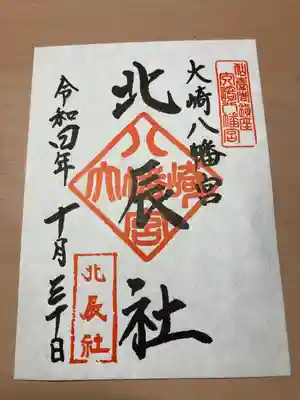 大崎八幡宮
大崎八幡宮
北辰社
大崎八幡宮
令和四年 十月三十日
北辰社